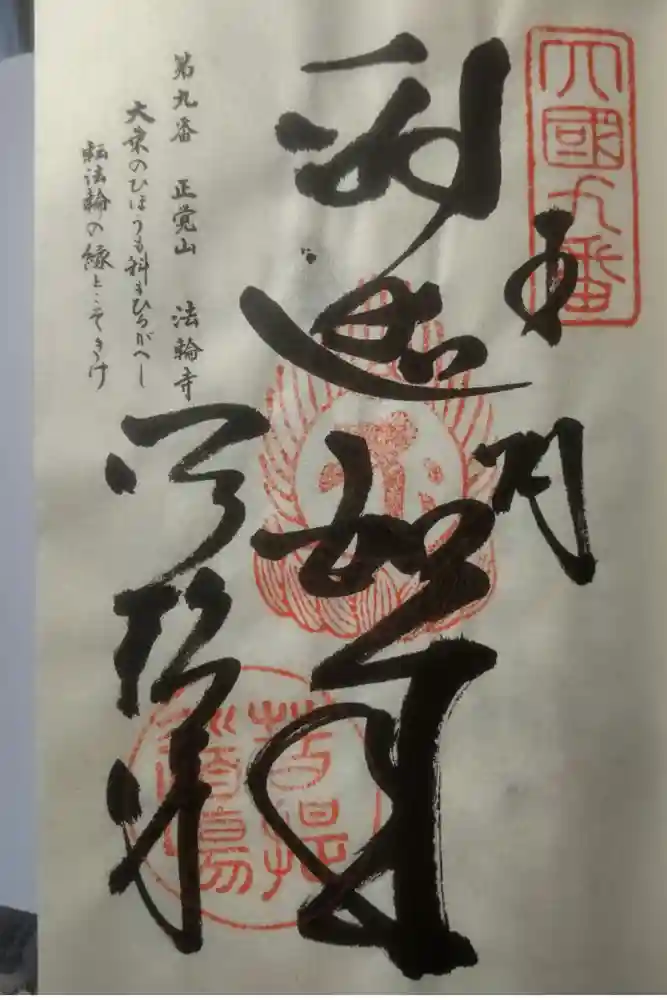 四國九番
奉納
釈迦如来
法輪寺
第九番　正覚山　法輪寺
大乗のひほうも科もひるがへし
転法輪の縁とこそきけ